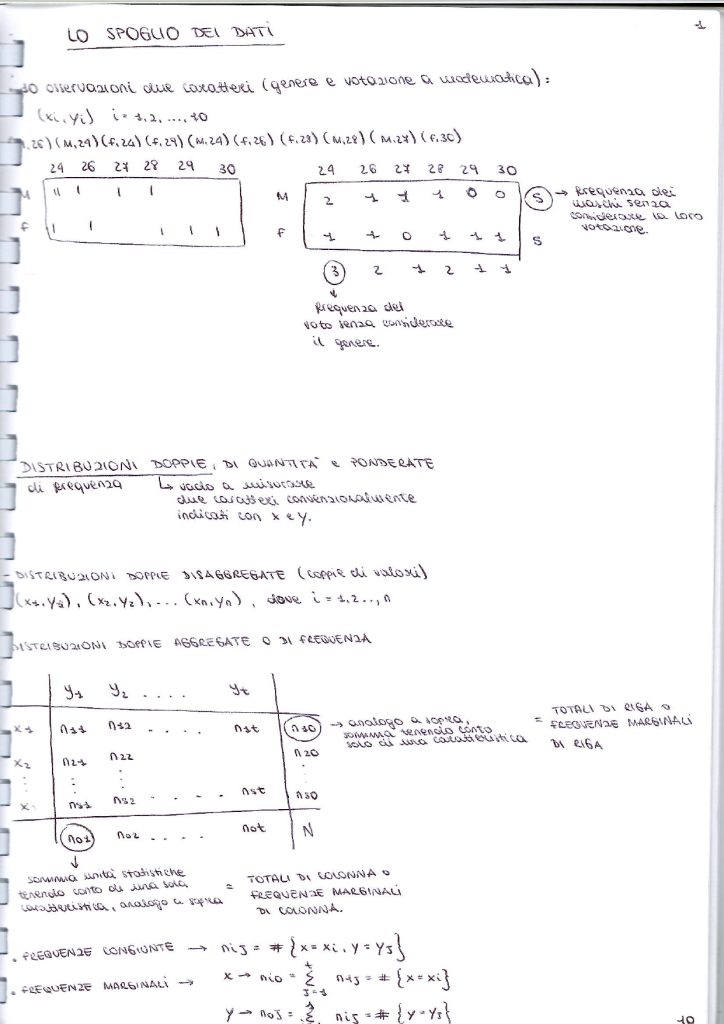 1
LO SPOGLIO DEI DATI
10 osservazioni due caratteri (genere e votazione a matematica):
(xi, yi) i = 1,2, ..., 10
,26) (M,24) (f,24) (f,29) (M,24) (f,26) (f,28) (M,28) (M,27) (f,30)
24 26 27 28 29 30
M II I I I
F I I I I I
24 26 27 28 29 30
M 2 1 1 1 0 0 5 → frequenza dei
maschi senza
considerare la loro
votazione.
F 1 1 0 1 1 1 5
3 2 1 2 1 1
frequenza del
voto senza considerare
il genere.
DISTRIBUZIONI DOPPIE, DI QUANTITÀ e PONDERATE
di frequenza ↳ vado a misurare
due caratteri convenzionalmente
indicati con x e y.
- DISTRIBUZIONI DOPPIE DISAGGREGATE (coppie di valori)
(x1,y1), (x2,y2), ... (xn,yn), dove i = 1,2..,n
DISTRIBUZIONI DOPPIE AGGREGATE O DI FREQUENZA
y1 y2 .... yt
x1 n11 n12 .... n1t n10 → analogo a sopra,
somma tenendo conto
solo di una caratteristica
= TOTALI DI RIGA o
FREQUENZE MARGINALI
DI RIGA
x2 n21 n22 n20
xs ns1 ns2 ..... nst ns0
n01 n02 .... n0t N
somma unità statistiche
tenendo conto di una sola
caratteristica, analogo a sopra
= TOTALI DI COLONNA o
FREQUENZE MARGINALI
DI COLONNA.
. FREQUENZE CONGIUNTE → nij = # {x = xi, y = yj}
. FREQUENZE MARGINALI → x → ni0 = Σ nij = # {x = xi}
t
j=1
y → n0j = Σ nij = # {y = yj}
10